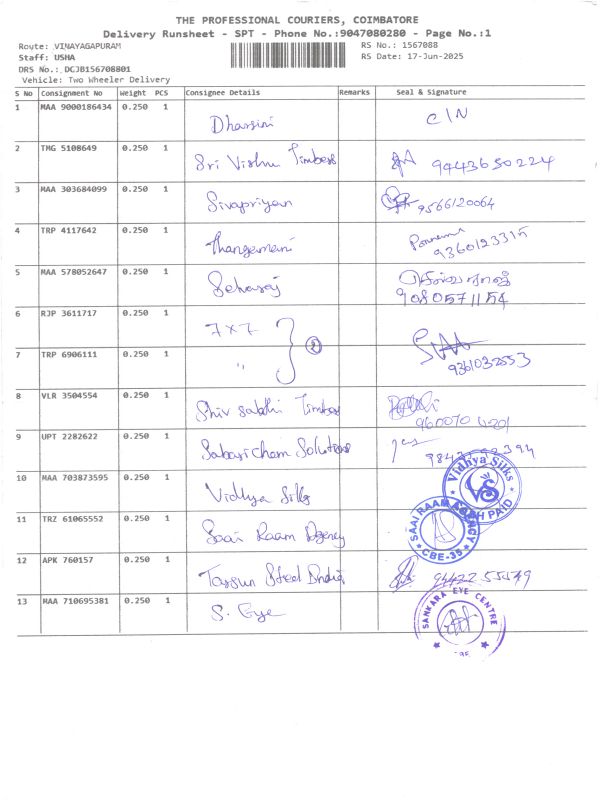 THE PROFESSIONAL COURIERS, COIMBATORE
Delivery Runsheet - SPT - Phone No.:9047080280 - Page No.:1
Route: VINAYAGAPURAM RS No.: 1567088
Staff: USHA RS Date: 17-Jun-2025
DRS No.: DCJB156708801
Vehicle: Two Wheeler Delivery
S No Consignment No Weight PCS Consignee Details Remarks Seal & Signature
1 MAA 9000186434 0.250 1 Dharsini C/N
2 TMG 5108649 0.250 1 Sri Vishnu Timbers 9443650224
3 MAA 303684099 0.250 1 Sivapriyan 9566120064
4 TRP 4117642 0.250 1 Thangamani 9360123315
5 MAA 578052647 0.250 1 Selvaraj செல்வராஜ்
9080571154
6 RJP 3611717 0.250 1 7x7
7 TRP 6906111 0.250 1 " 2 9361032553
8 VLR 3504554 0.250 1 Shiv sakthi Timbers
9 UPT 2282622 0.250 1 Sabaricham Solutions
10 MAA 703873595 0.250 1 Vidhya Silks Vidhya Silks VS CASH PAID
11 TRZ 61065552 0.250 1 Saai Raam Agency SAAI RAAM AGENCY CBE-35
12 APK 760157 0.250 1 Tassun Steel India 94422 55479
13 MAA 710695381 0.250 1 S. Eye SANKARA EYE CENTRE